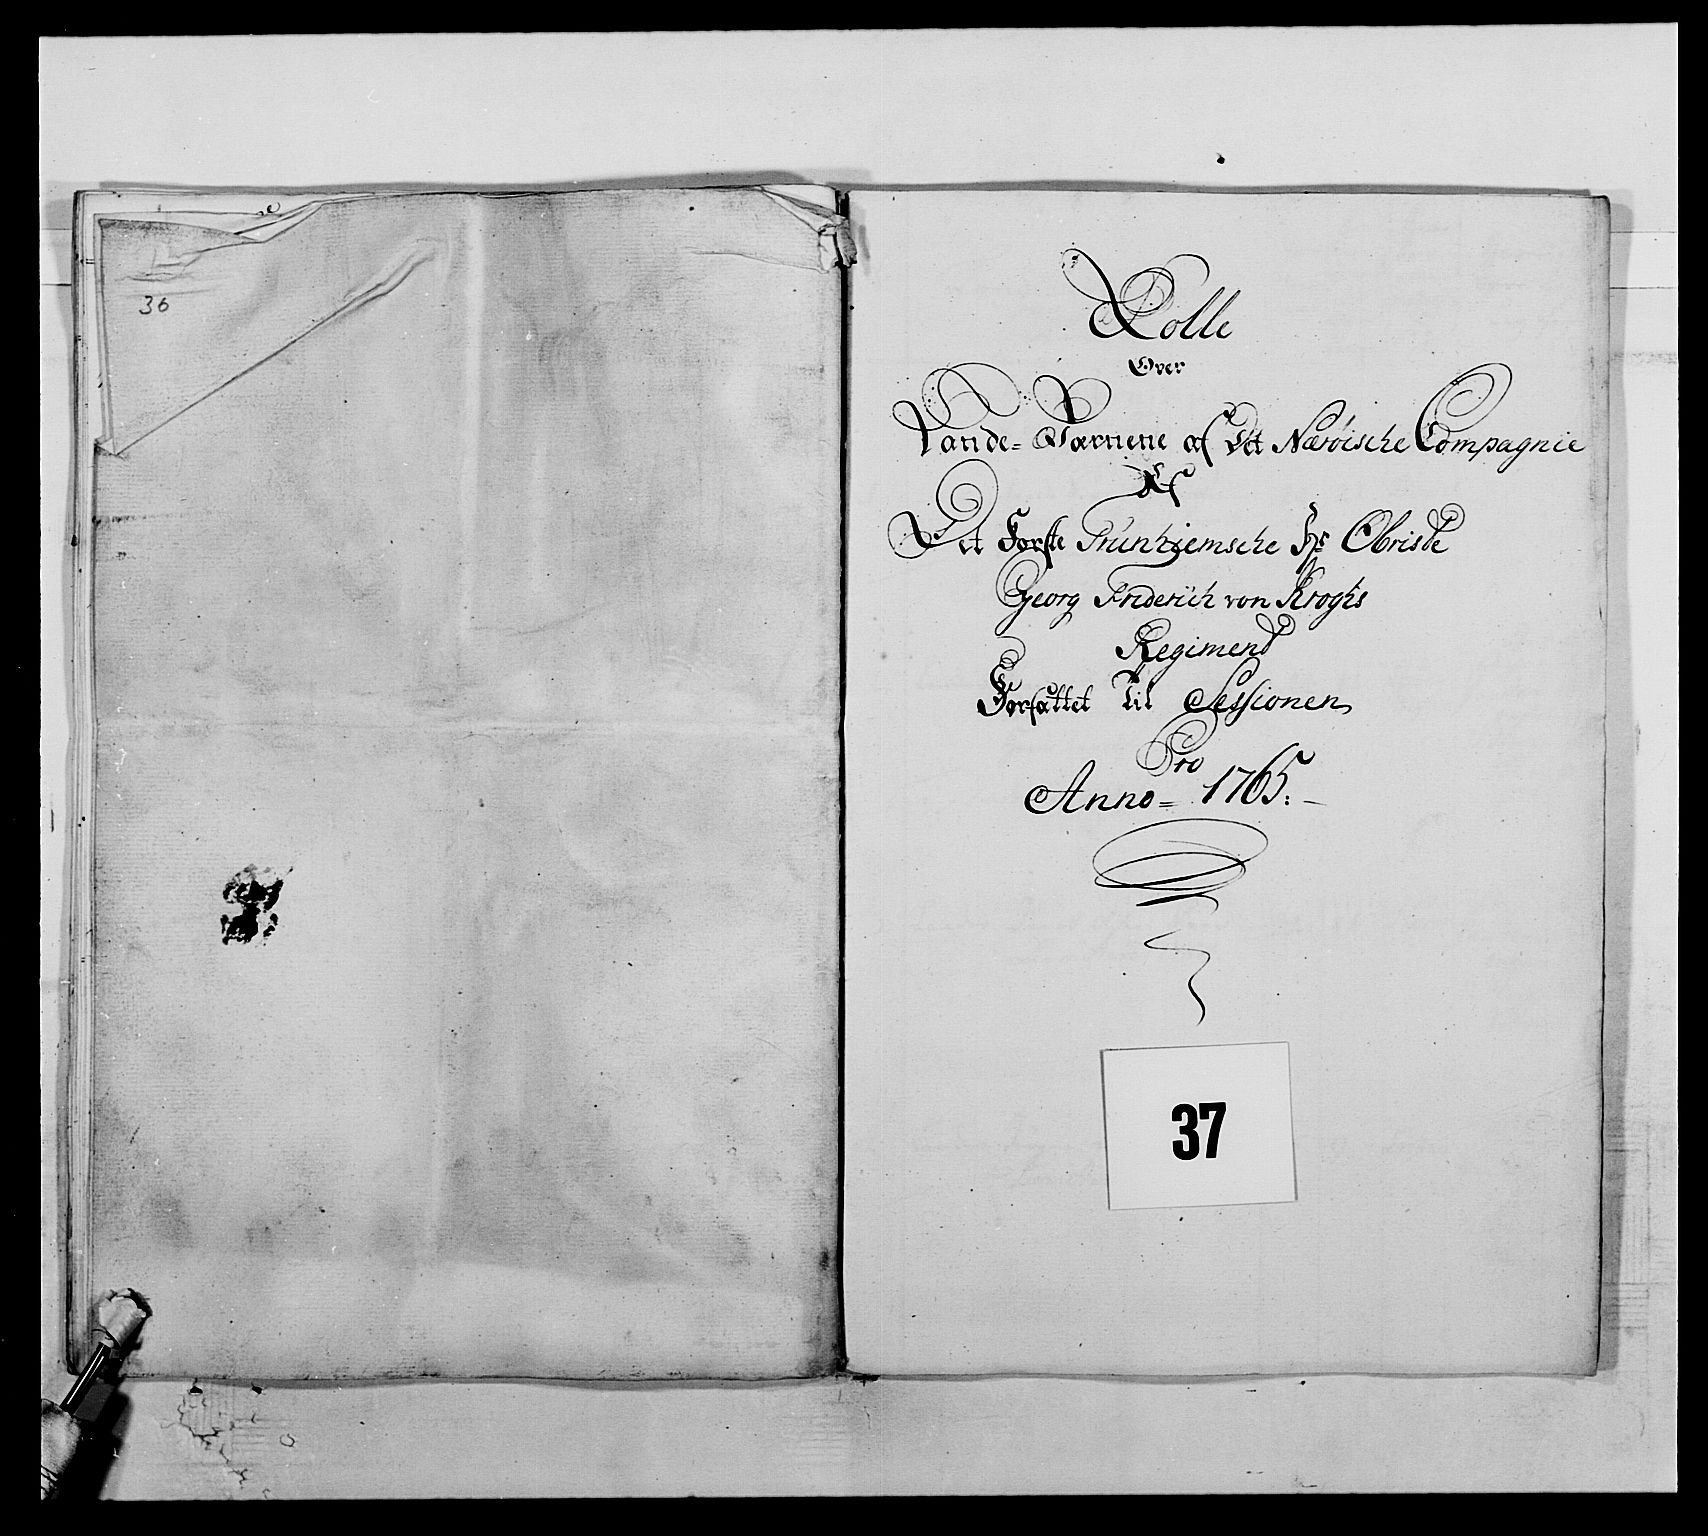 36
Rolle
Over
Lande-Værnene af Det Nærøische Compagnie
Af
Det Første Trunhiemsche Hr Obriste
Georg Friderich von Kroghs
Regiment
Forfattet til Sessionen
Pro
Anno = 1765: -
37